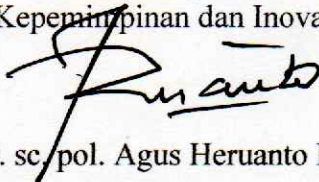 Kepemimpinan dan Inova
. sc. pol. Agus Heruanto